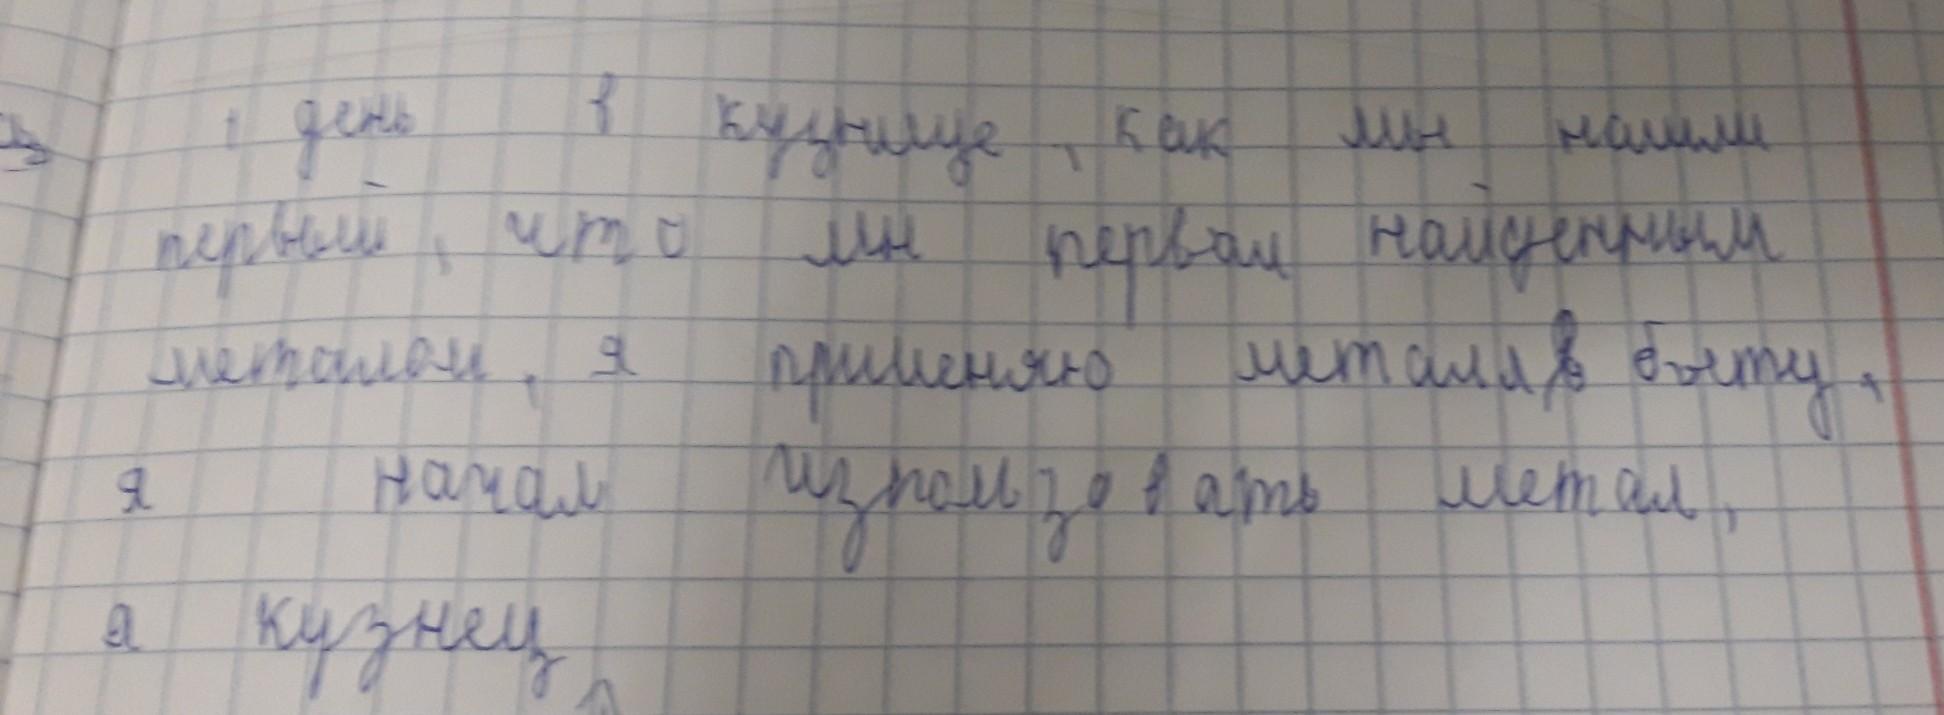 1 день в кузнице, как мы нашли
первый, что мы первам найденным
металом, я применяю металл в быту,
я начал изпользовать метал,
я кузнец